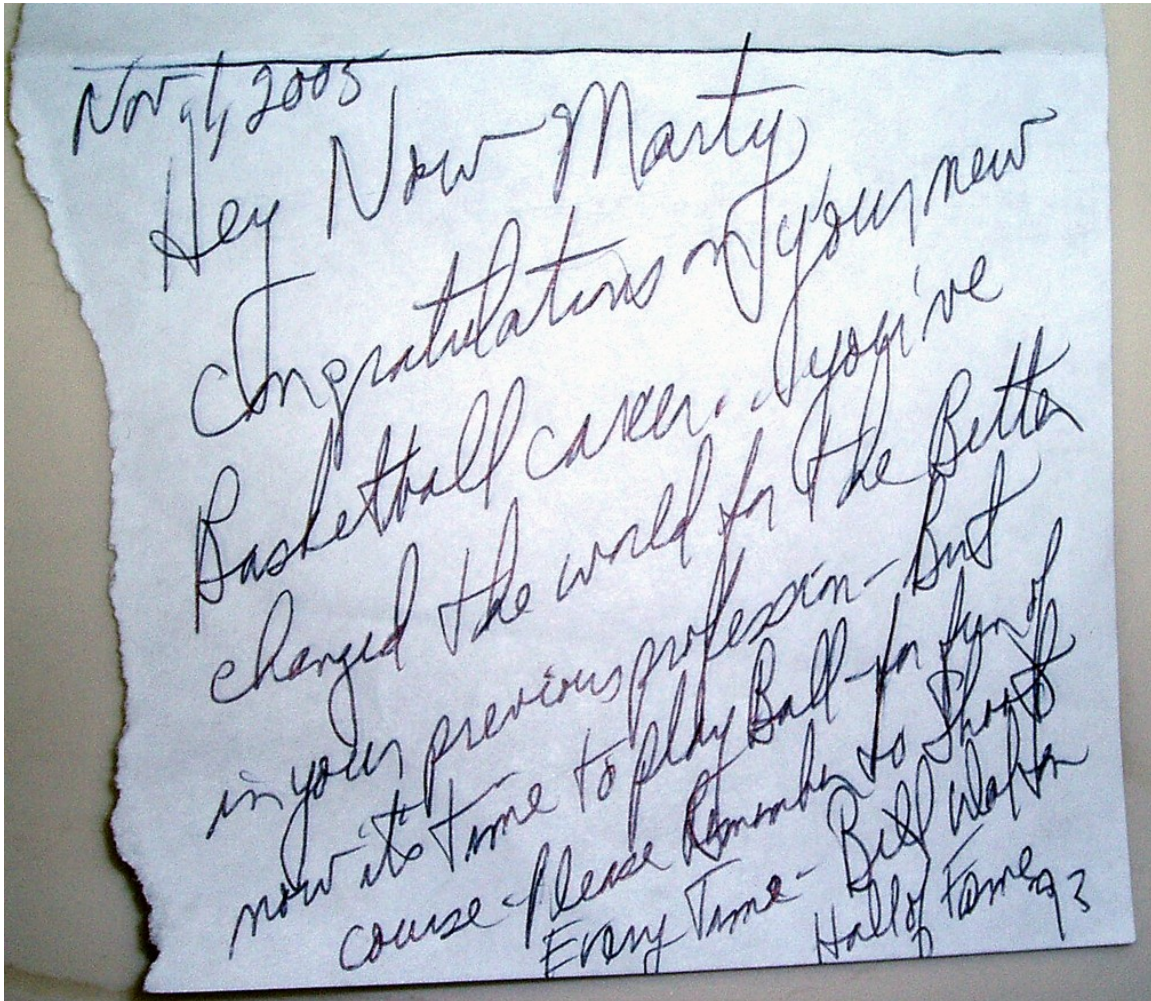 Nov 1, 2005
Hey Now Marty
Congratulations on your new
Basketball career... you've
changed the world for the Better
in your previous profession - But
now its time to play Ball - for fun of
course - Please Remember to Shoot
Every Time - Bill Walton
Hall of Fame 93